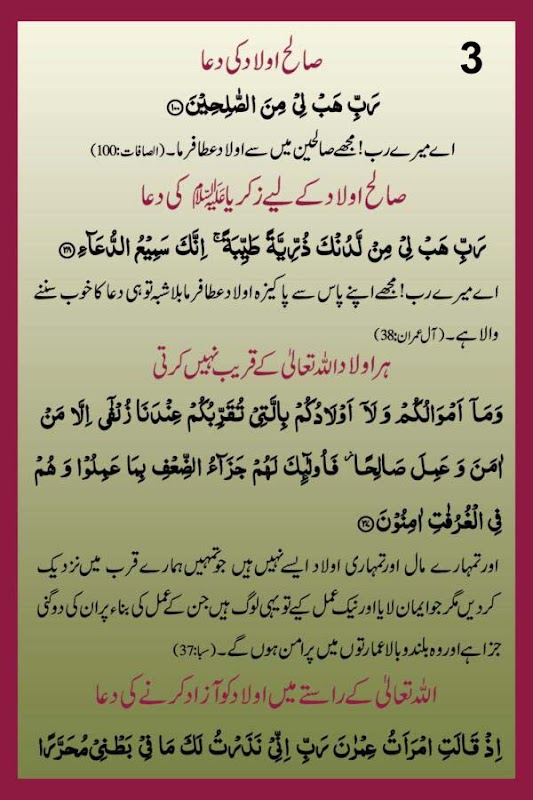 3
صالح اولاد کی دعا
رَبِّ هَبْ لِیْ مِنَ الصّٰلِحِیْنَ ۝۱۰۰
اے میرے رب! مجھے صالحین میں سے اولاد عطا فرما۔ (الصافات:100)
صالح اولاد کے لیے زکریا علیہ السلام کی دعا
رَبِّ هَبْ لِیْ مِنْ لَّدُنْكَ ذُرِّیَّةً طَیِّبَةً ۚ اِنَّكَ سَمِیْعُ الدُّعَآءِ ۝۳۸
اے میرے رب! مجھے اپنے پاس سے پاکیزہ اولاد عطا فرما بلاشبہ تو ہی دعا کا خوب سننے
والا ہے۔ (آل عمران:38)
ہر اولاد اللہ تعالیٰ کے قریب نہیں کرتی
وَمَاۤ اَمْوَالُكُمْ وَلَاۤ اَوْلَادُكُمْ بِالَّتِیْ تُقَرِّبُكُمْ عِنْدَنَا زُلْفٰۤی اِلَّا مَنْ
اٰمَنَ وَ عَمِلَ صَالِحًا ؗ فَاُولٰٓىِٕكَ لَهُمْ جَزَآءُ الضِّعْفِ بِمَا عَمِلُوْا وَ هُمْ
فِی الْغُرُفٰتِ اٰمِنُوْنَ ۝۳۷
اور تمہارے مال اور تمہاری اولاد ایسے نہیں ہیں جو تمہیں ہمارے قرب میں نزدیک
کر دیں مگر جو ایمان لایا اور نیک عمل کیے تو یہی لوگ ہیں جن کے عمل کی بناء پر ان کی دوگنی
جزا ہے اور وہ بلند و بالا عمارتوں میں پر امن ہوں گے۔ (سبا:37)
اللہ تعالیٰ کے راستے میں اولاد کو آزاد کرنے کی دعا
اِذْ قَالَتِ امْرَاَتُ عِمْرٰنَ رَبِّ اِنِّیْ نَذَرْتُ لَكَ مَا فِیْ بَطْنِیْ مُحَرَّرًا